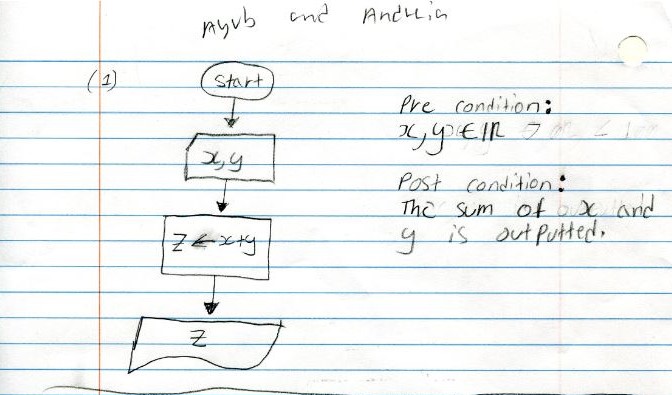 Ayub and
(1)
Start
x, y
z ← x+y
z
Pre condition:
x, y ∈ ℝ
Post condition:
The sum of x and
y is outputted.